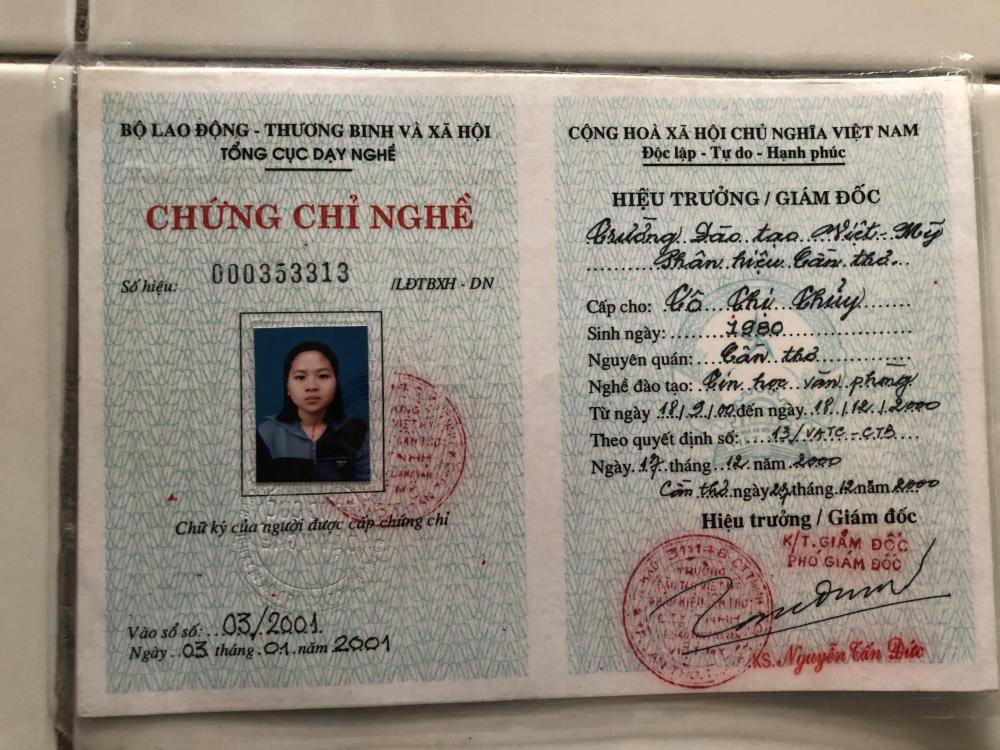 BỘ LAO ĐỘNG - THƯƠNG BINH VÀ XÃ HỘI
TỔNG CỤC DẠY NGHỀ
CHỨNG CHỈ NGHỀ
Số hiệu: 000353313 /LĐTBXH - DN
Chữ ký của người được cấp chứng chỉ
Vào sổ số: 03/2001
Ngày 03 tháng 01 năm 2001
CỘNG HOÀ XÃ HỘI CHỦ NGHĨA VIỆT NAM
Độc lập - Tự do - Hạnh phúc
HIỆU TRƯỞNG / GIÁM ĐỐC
Trường Đào tạo Việt-Mỹ
Phân hiệu Cần thơ
Cấp cho: Tô Thị Thủy
Sinh ngày: 1980
Nguyên quán: Cần thơ
Nghề đào tạo: Tin học văn phòng
Từ ngày 18/9/00 đến ngày 18/12/2000
Theo quyết định số: 13/VATC-CTB
Ngày 17 tháng 12 năm 2000
Cần thơ ngày 27 tháng 12 năm 2000
Hiệu trưởng / Giám đốc
K/T. GIÁM ĐỐC
PHÓ GIÁM ĐỐC
KS. Nguyễn Tấn Đức